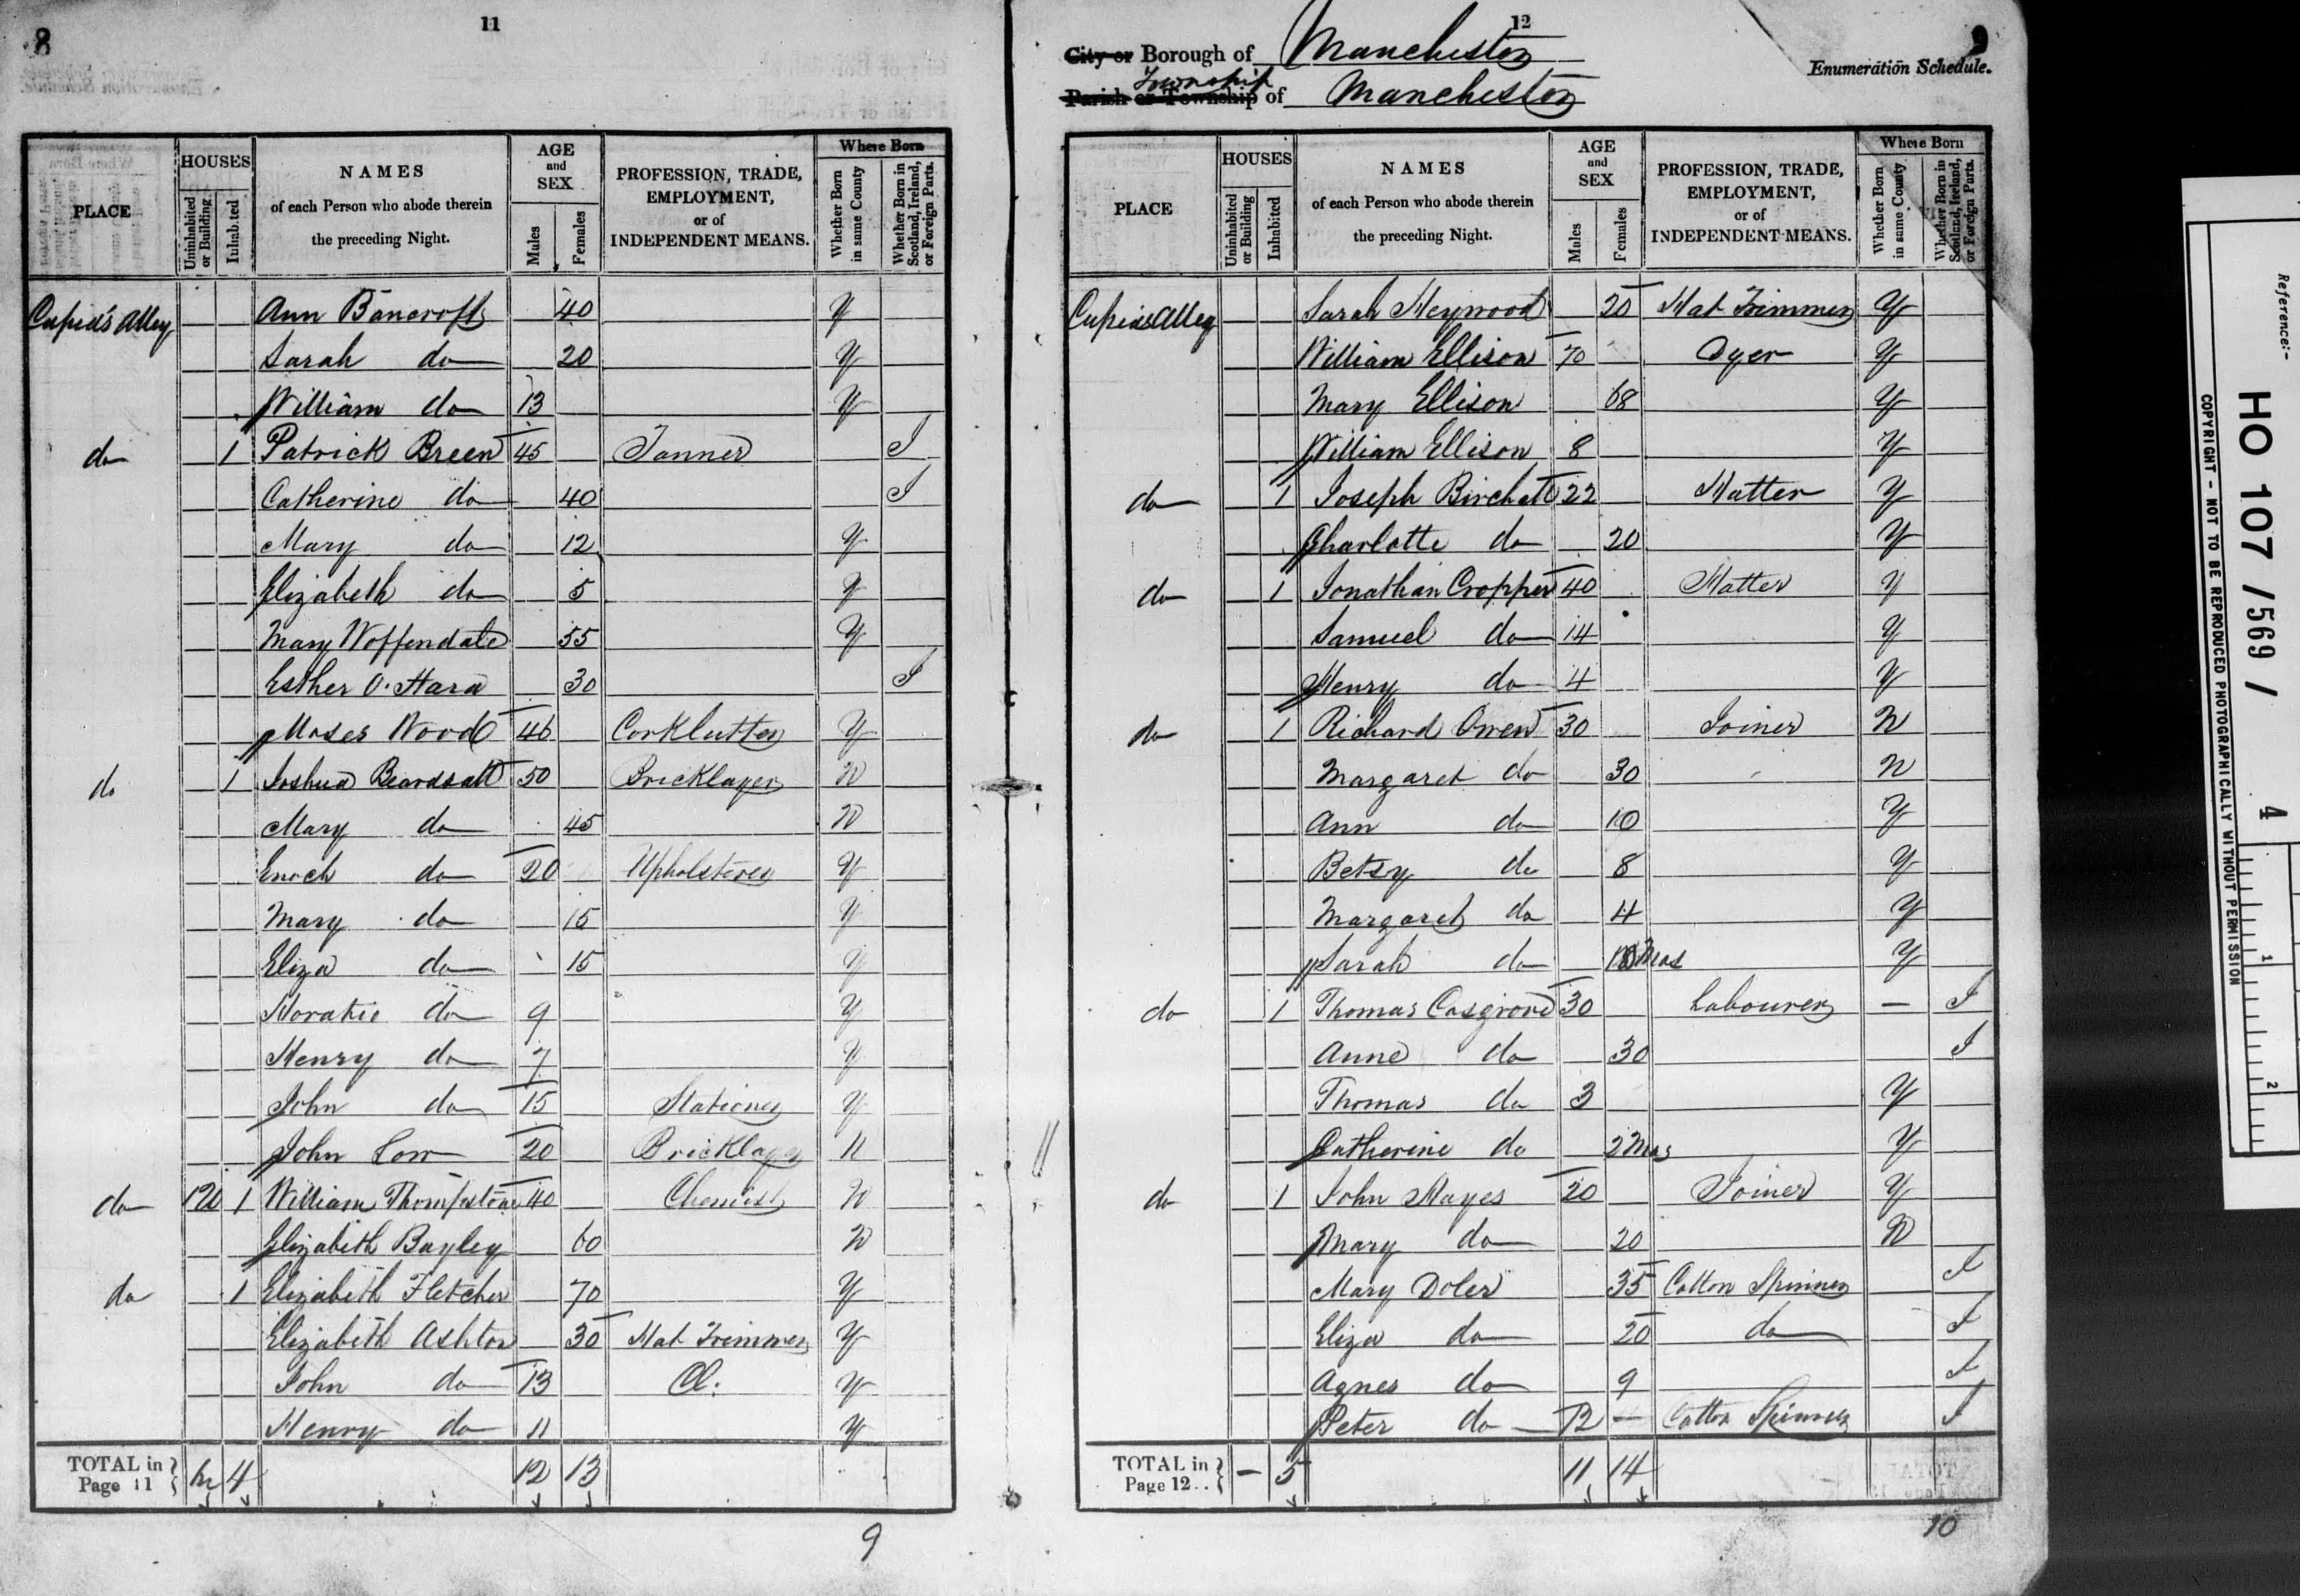 8
11
PLACE
HOUSES
Uninhabited or Building
Inhabited
NAMES
of each Person who abode therein
the preceding Night.
AGE
and
SEX
Males
Females
PROFESSION, TRADE,
EMPLOYMENT,
or of
INDEPENDENT MEANS.
Where Born
Whether Born in same County
Whether Born in Scotland, Ireland, or Foreign Parts.
Cupid's Alley Ann Bancroft 40 Y
Sarah do 20 Y
William do 13 Y
do 1 Patrick Breen 45 Tanner I
Catherine do 40 I
Mary do 12 Y
Elizabeth do 5 Y
Mary Woffendale 55 Y
Esther O'Hara 30 I
Moses Wood 46 Cork Cutter Y
do 1 Joshua Beardsall 50 Bricklayer N
Mary do 45 N
Enoch do 20 Upholsterer Y
Mary do 15 Y
Eliza do 15 Y
Horatio do 9 Y
Henry do 7 Y
John do 15 Stationer Y
John Low 20 Bricklayer N
do 1 William Thompstone 40 Chemist N
Elizabeth Bayley 60 N
do 1 Elizabeth Fletcher 70 Y
Elizabeth Ashton 30 Hat Trimmer Y
John do 13 Cl. Y
Henry do 11 Y
TOTAL in Page 11 4 12 13
9
12
9
City or Borough of Manchester
Township
Parish or Township of Manchester
Enumeration Schedule.
PLACE
HOUSES
Uninhabited or Building
Inhabited
NAMES
of each Person who abode therein
the preceding Night.
AGE
and
SEX
Males
Females
PROFESSION, TRADE,
EMPLOYMENT,
or of
INDEPENDENT MEANS.
Where Born
Whether Born in same County
Whether Born in Scotland, Ireland, or Foreign Parts.
Cupids Alley Sarah Heywood 20 Hat Trimmer Y
William Ellison 70 Dyer Y
Mary Ellison 68 Y
William Ellison 8 Y
do 1 Joseph Birchall 22 Hatter Y
Charlotte do 20 Y
do 1 Jonathan Cropper 40 Hatter Y
Samuel do 14 Y
Henry do 4 Y
do 1 Richard Owen 30 Joiner N
Margaret do 30 N
Ann do 10 Y
Betsy do 8 Y
Margaret do 4 Y
Sarah do 10 Mos Y
do 1 Thomas Cosgrove 30 Labourer — I
Anne do 30 I
Thomas do 3 Y
Catherine do 2 Mos Y
do 1 John Hayes 20 Joiner Y
Mary do 20 N
Mary Doler 35 Cotton Spinner I
Eliza do 20 do I
Agnes do 9 I
Peter do 12 — Cotton Spinner I
TOTAL in Page 12.. — 5 11 14
10
Reference:-
HO 107 / 569 / 4
COPYRIGHT - NOT TO BE REPRODUCED PHOTOGRAPHICALLY WITHOUT PERMISSION
1
2